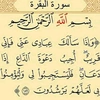 سورة البقرة
بِسْمِ اللَّهِ الرَّحْمَٰنِ الرَّحِيمِ
﴿وَإِذَا سَأَلَكَ عِبَادِى عَنِّى فَإِنِّى
قَرِيبٌ أُجِيبُ دَعْوَةَ الدَّاعِ إِذَا
دَعَانِ فَلْيَسْتَجِيبُوا لِى وَلْيُؤْمِنُوا
بِى لَعَلَّهُمْ يَرْشُدُونَ﴾